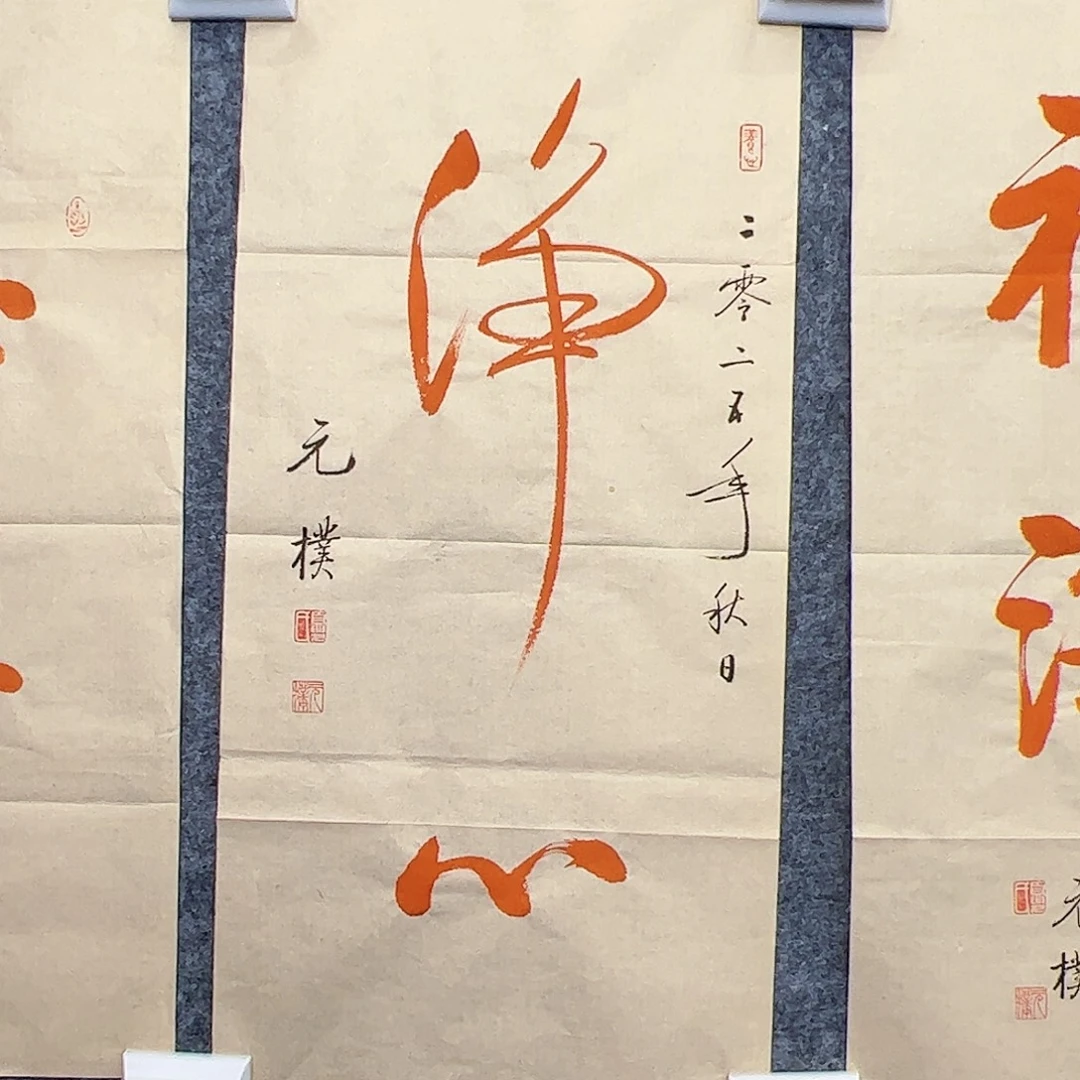 二零二五年秋日
淨心
元樸
元樸